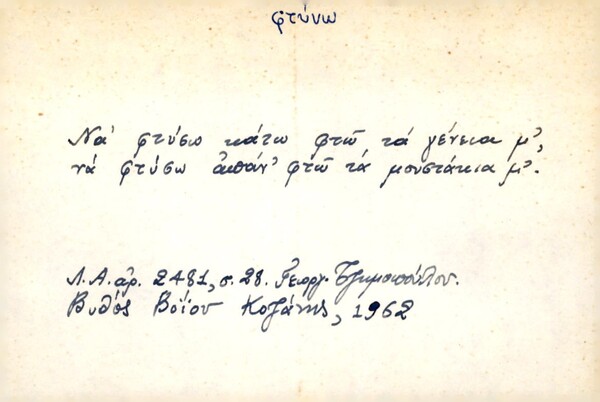 φτύνω
Νά φτύσω κάτω φτῶ τά γένεια μ',
νά φτύσω ἀπάν' φτῶ τά μουστάκια μ'.
Λ.Α. ἀρ. 2481, σ. 28. Γεωργ. Τζημοπούλου.
Βυθός Βοΐου Κοζάνης, 1962